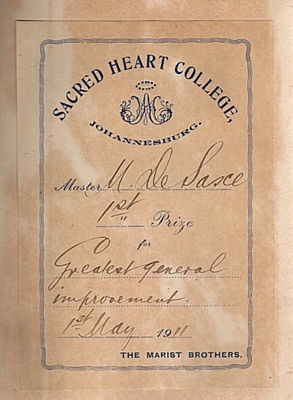 SACRED HEART COLLEGE,
JOHANNESBURG.
Master M. De Sasce
1st Prize
for
Greatest general
improvement.
1st May 1911
THE MARIST BROTHERS.